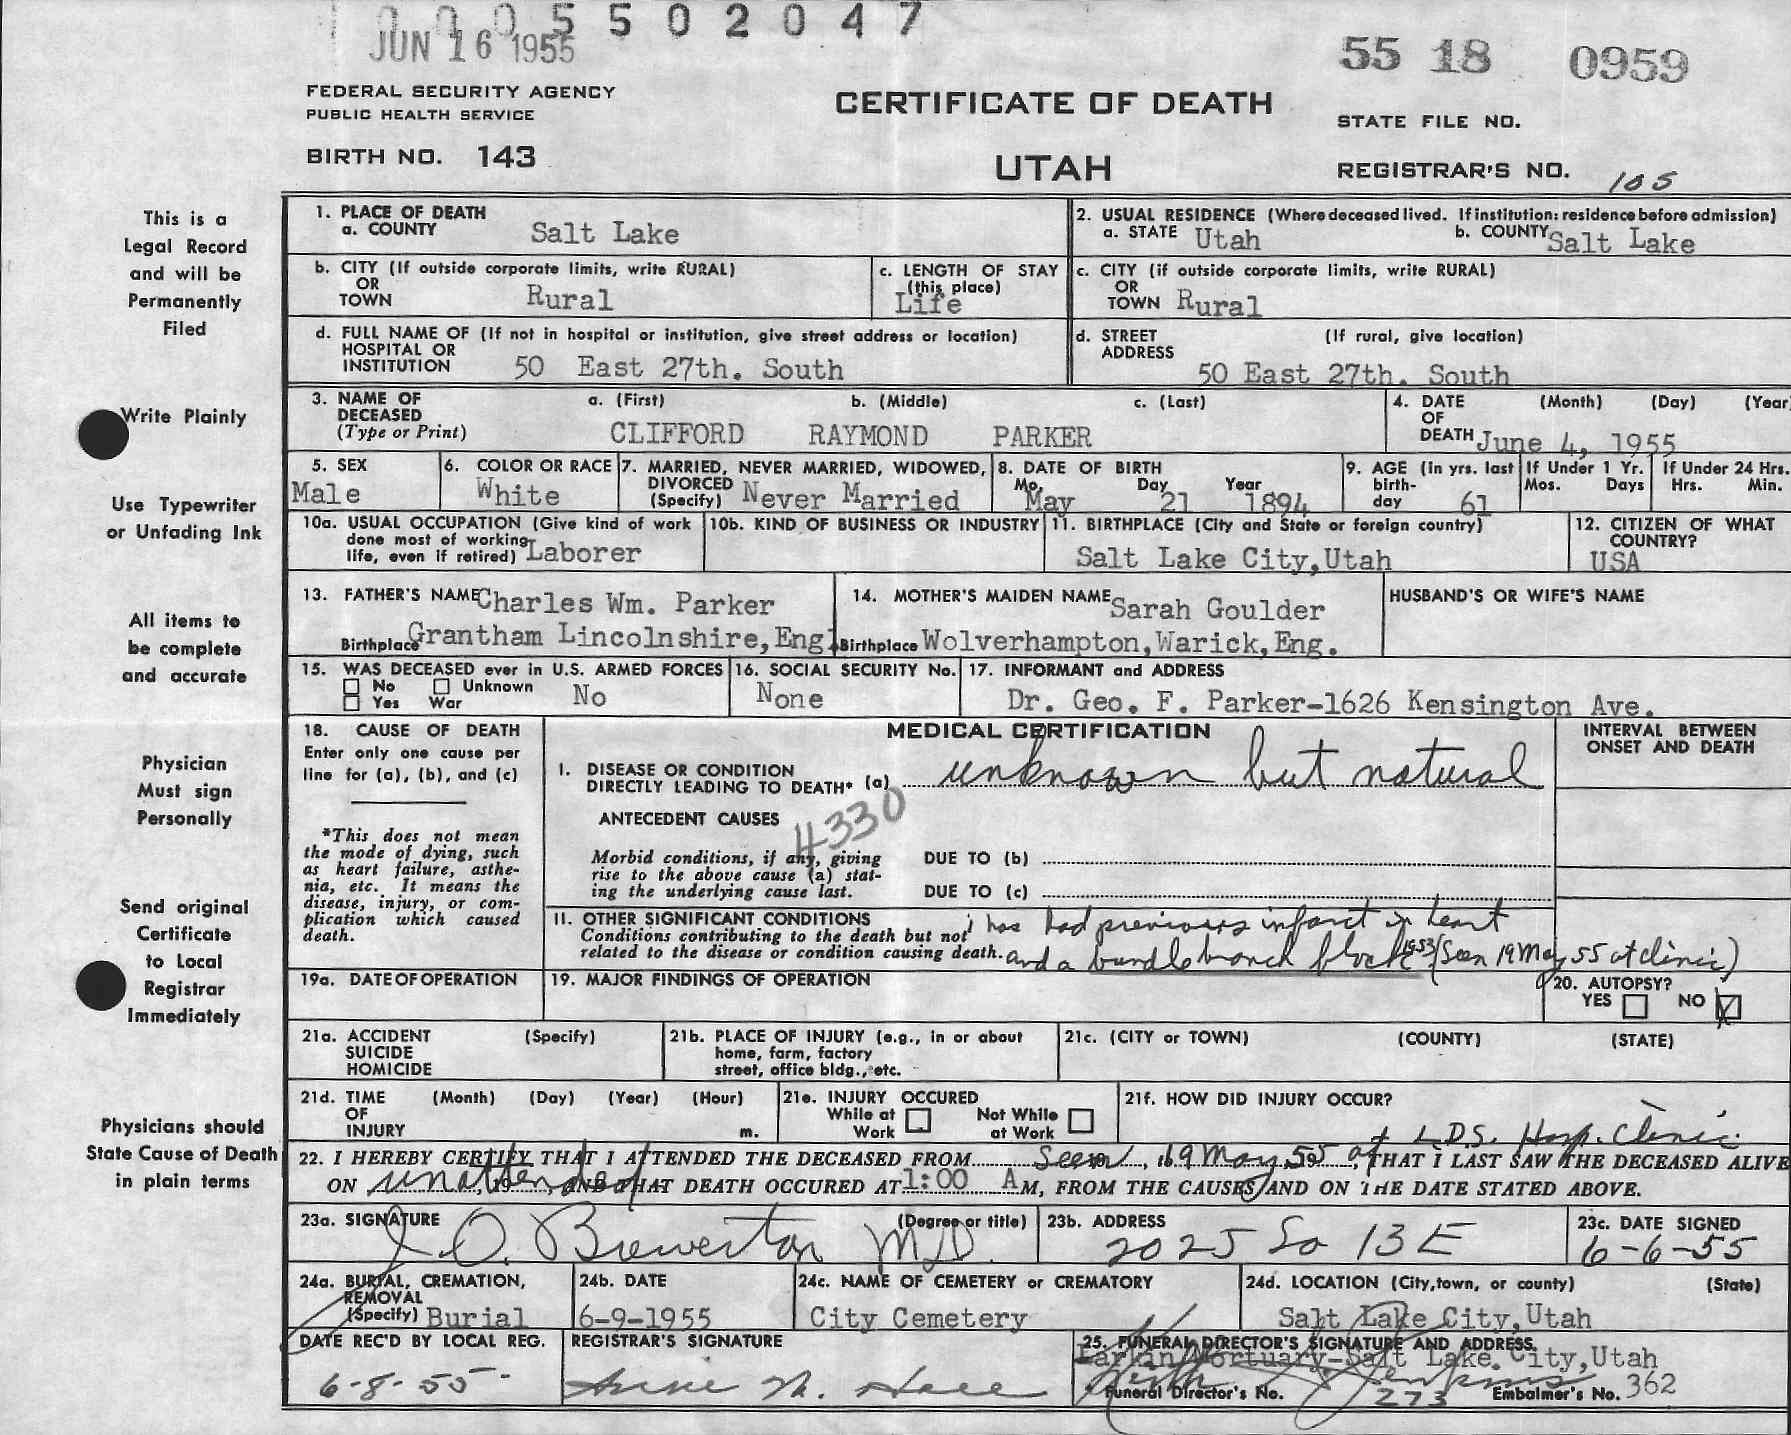 00055 0 2 0 4 7
JUN 16 1955
55 18 0959
FEDERAL SECURITY AGENCY
PUBLIC HEALTH SERVICE
CERTIFICATE OF DEATH
STATE FILE NO.
BIRTH NO. 143
UTAH
REGISTRAR'S NO. 105
This is a
Legal Record
and will be
Permanently
Filed
Write Plainly
Use Typewriter
or Unfading Ink
All items to
be complete
and accurate
Physician
Must sign
Personally
Send original
Certificate
to Local
Registrar
Immediately
Physicians should
State Cause of Death
in plain terms
1. PLACE OF DEATH
a. COUNTY Salt Lake
2. USUAL RESIDENCE (Where deceased lived. If institution: residence before admission)
a. STATE Utah b. COUNTY Salt Lake
b. CITY (If outside corporate limits, write RURAL)
OR
TOWN Rural
c. LENGTH OF STAY
(this place)
Life
c. CITY (if outside corporate limits, write RURAL)
OR
TOWN Rural
d. FULL NAME OF (If not in hospital or institution, give street address or location)
HOSPITAL OR
INSTITUTION 50 East 27th. South
d. STREET (If rural, give location)
ADDRESS
50 East 27th. South
3. NAME OF a. (First) b. (Middle) c. (Last)
DECEASED
(Type or Print) CLIFFORD RAYMOND PARKER
4. DATE (Month) (Day) (Year
OF
DEATH June 4, 1955
5. SEX
Male
6. COLOR OR RACE
White
7. MARRIED, NEVER MARRIED, WIDOWED,
DIVORCED
(Specify) Never Married
8. DATE OF BIRTH
Mo. Day Year
May 21 1894
9. AGE (In yrs. last
birth-
day 61
If Under 1 Yr.
Mos. Days
If Under 24 Hrs.
Hrs. Min.
10a. USUAL OCCUPATION (Give kind of work
done most of working
life, even if retired) Laborer
10b. KIND OF BUSINESS OR INDUSTRY
11. BIRTHPLACE (City and State or foreign country)
Salt Lake City,Utah
12. CITIZEN OF WHAT
COUNTRY?
USA
13. FATHER'S NAME Charles Wm. Parker
Birthplace Grantham Lincolnshire,Eng.
14. MOTHER'S MAIDEN NAME Sarah Goulder
Birthplace Wolverhampton,Warick,Eng.
HUSBAND'S OR WIFE'S NAME
15. WAS DECEASED ever in U.S. ARMED FORCES
No Unknown No
Yes War
16. SOCIAL SECURITY No.
None
17. INFORMANT and ADDRESS
Dr. Geo. F. Parker-1626 Kensington Ave.
18. CAUSE OF DEATH
Enter only one cause per
line for (a), (b), and (c)
*This does not mean
the mode of dying, such
as heart failure, asthe-
nia, etc. It means the
disease, injury, or com-
plication which caused
death.
MEDICAL CERTIFICATION
INTERVAL BETWEEN
ONSET AND DEATH
I. DISEASE OR CONDITION
DIRECTLY LEADING TO DEATH* (a) unknown but natural
ANTECEDENT CAUSES
4330
Morbid conditions, if any, giving
rise to the above cause (a) stat-
ing the underlying cause last.
DUE TO (b)
DUE TO (c)
II. OTHER SIGNIFICANT CONDITIONS
Conditions contributing to the death but not
related to the disease or condition causing death.
has had previous infarct in heart
and a bundle branch block 1953 (Seen 19 May 55 at clinic)
19a. DATE OF OPERATION
19. MAJOR FINDINGS OF OPERATION
20. AUTOPSY?
YES NO X
21a. ACCIDENT (Specify)
SUICIDE
HOMICIDE
21b. PLACE OF INJURY (e.g., in or about
home, farm, factory
street, office bldg., etc.
21c. (CITY or TOWN) (COUNTY) (STATE)
21d. TIME (Month) (Day) (Year) (Hour)
OF
INJURY m.
21e. INJURY OCCURED
While at Not While
Work at Work
21f. HOW DID INJURY OCCUR?
at L.D.S. Hosp. Clinic
22. I HEREBY CERTIFY THAT I ATTENDED THE DECEASED FROM Seen, 19 May, 55, THAT I LAST SAW THE DECEASED ALIVE
ON unattended, 19 , AND THAT DEATH OCCURED AT 1:00 AM, FROM THE CAUSES AND ON THE DATE STATED ABOVE.
23a. SIGNATURE (Degree or title)
J. O. Brewerton MD.
23b. ADDRESS
2025 So 13 E
23c. DATE SIGNED
6-6-55
24a. BURIAL, CREMATION,
REMOVAL
(Specify) Burial
24b. DATE
6-9-1955
24c. NAME OF CEMETERY or CREMATORY
City Cemetery
24d. LOCATION (City,town, or county) (State)
Salt Lake City,Utah
DATE REC'D BY LOCAL REG.
6-8-55
REGISTRAR'S SIGNATURE
25. FUNERAL DIRECTOR'S SIGNATURE AND ADDRESS.
Larkin Mortuary-Salt Lake City,Utah
Jenkins
Funeral Director's No. 273 Embalmer's No. 362